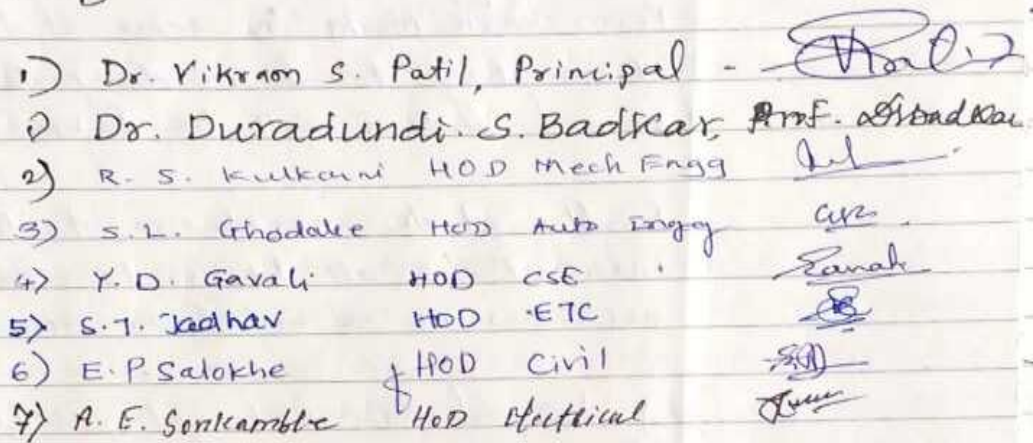 1) Dr. Vikram S. Patil, Principal -
2) Dr. Duradundi. S. Badkar, Prof.
2) R. S. Kulkarni HOD Mech Engg
3) S. L. Ghodake HOD Auto Engg
4) Y. D. Gavali HOD CSE
5) S. T. Jadhav HOD ETC
6) E. P Salokhe HOD Civil
7) A. E. Sonkamble HOD Electrical